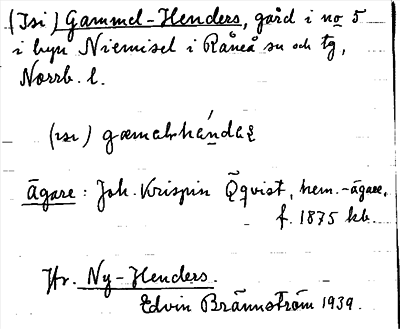 (Isi) Gammel-Henders, gård i no 5
i byn Niemisel i Råneå sn och tg,
Norrb. l.
(ɪsɪ)
Ägare: Joh. Krispin Öqvist, hem.-ägare,
f. 1875 kb.
Jfr. Ny-Henders.
Edvin Brännström 1939.